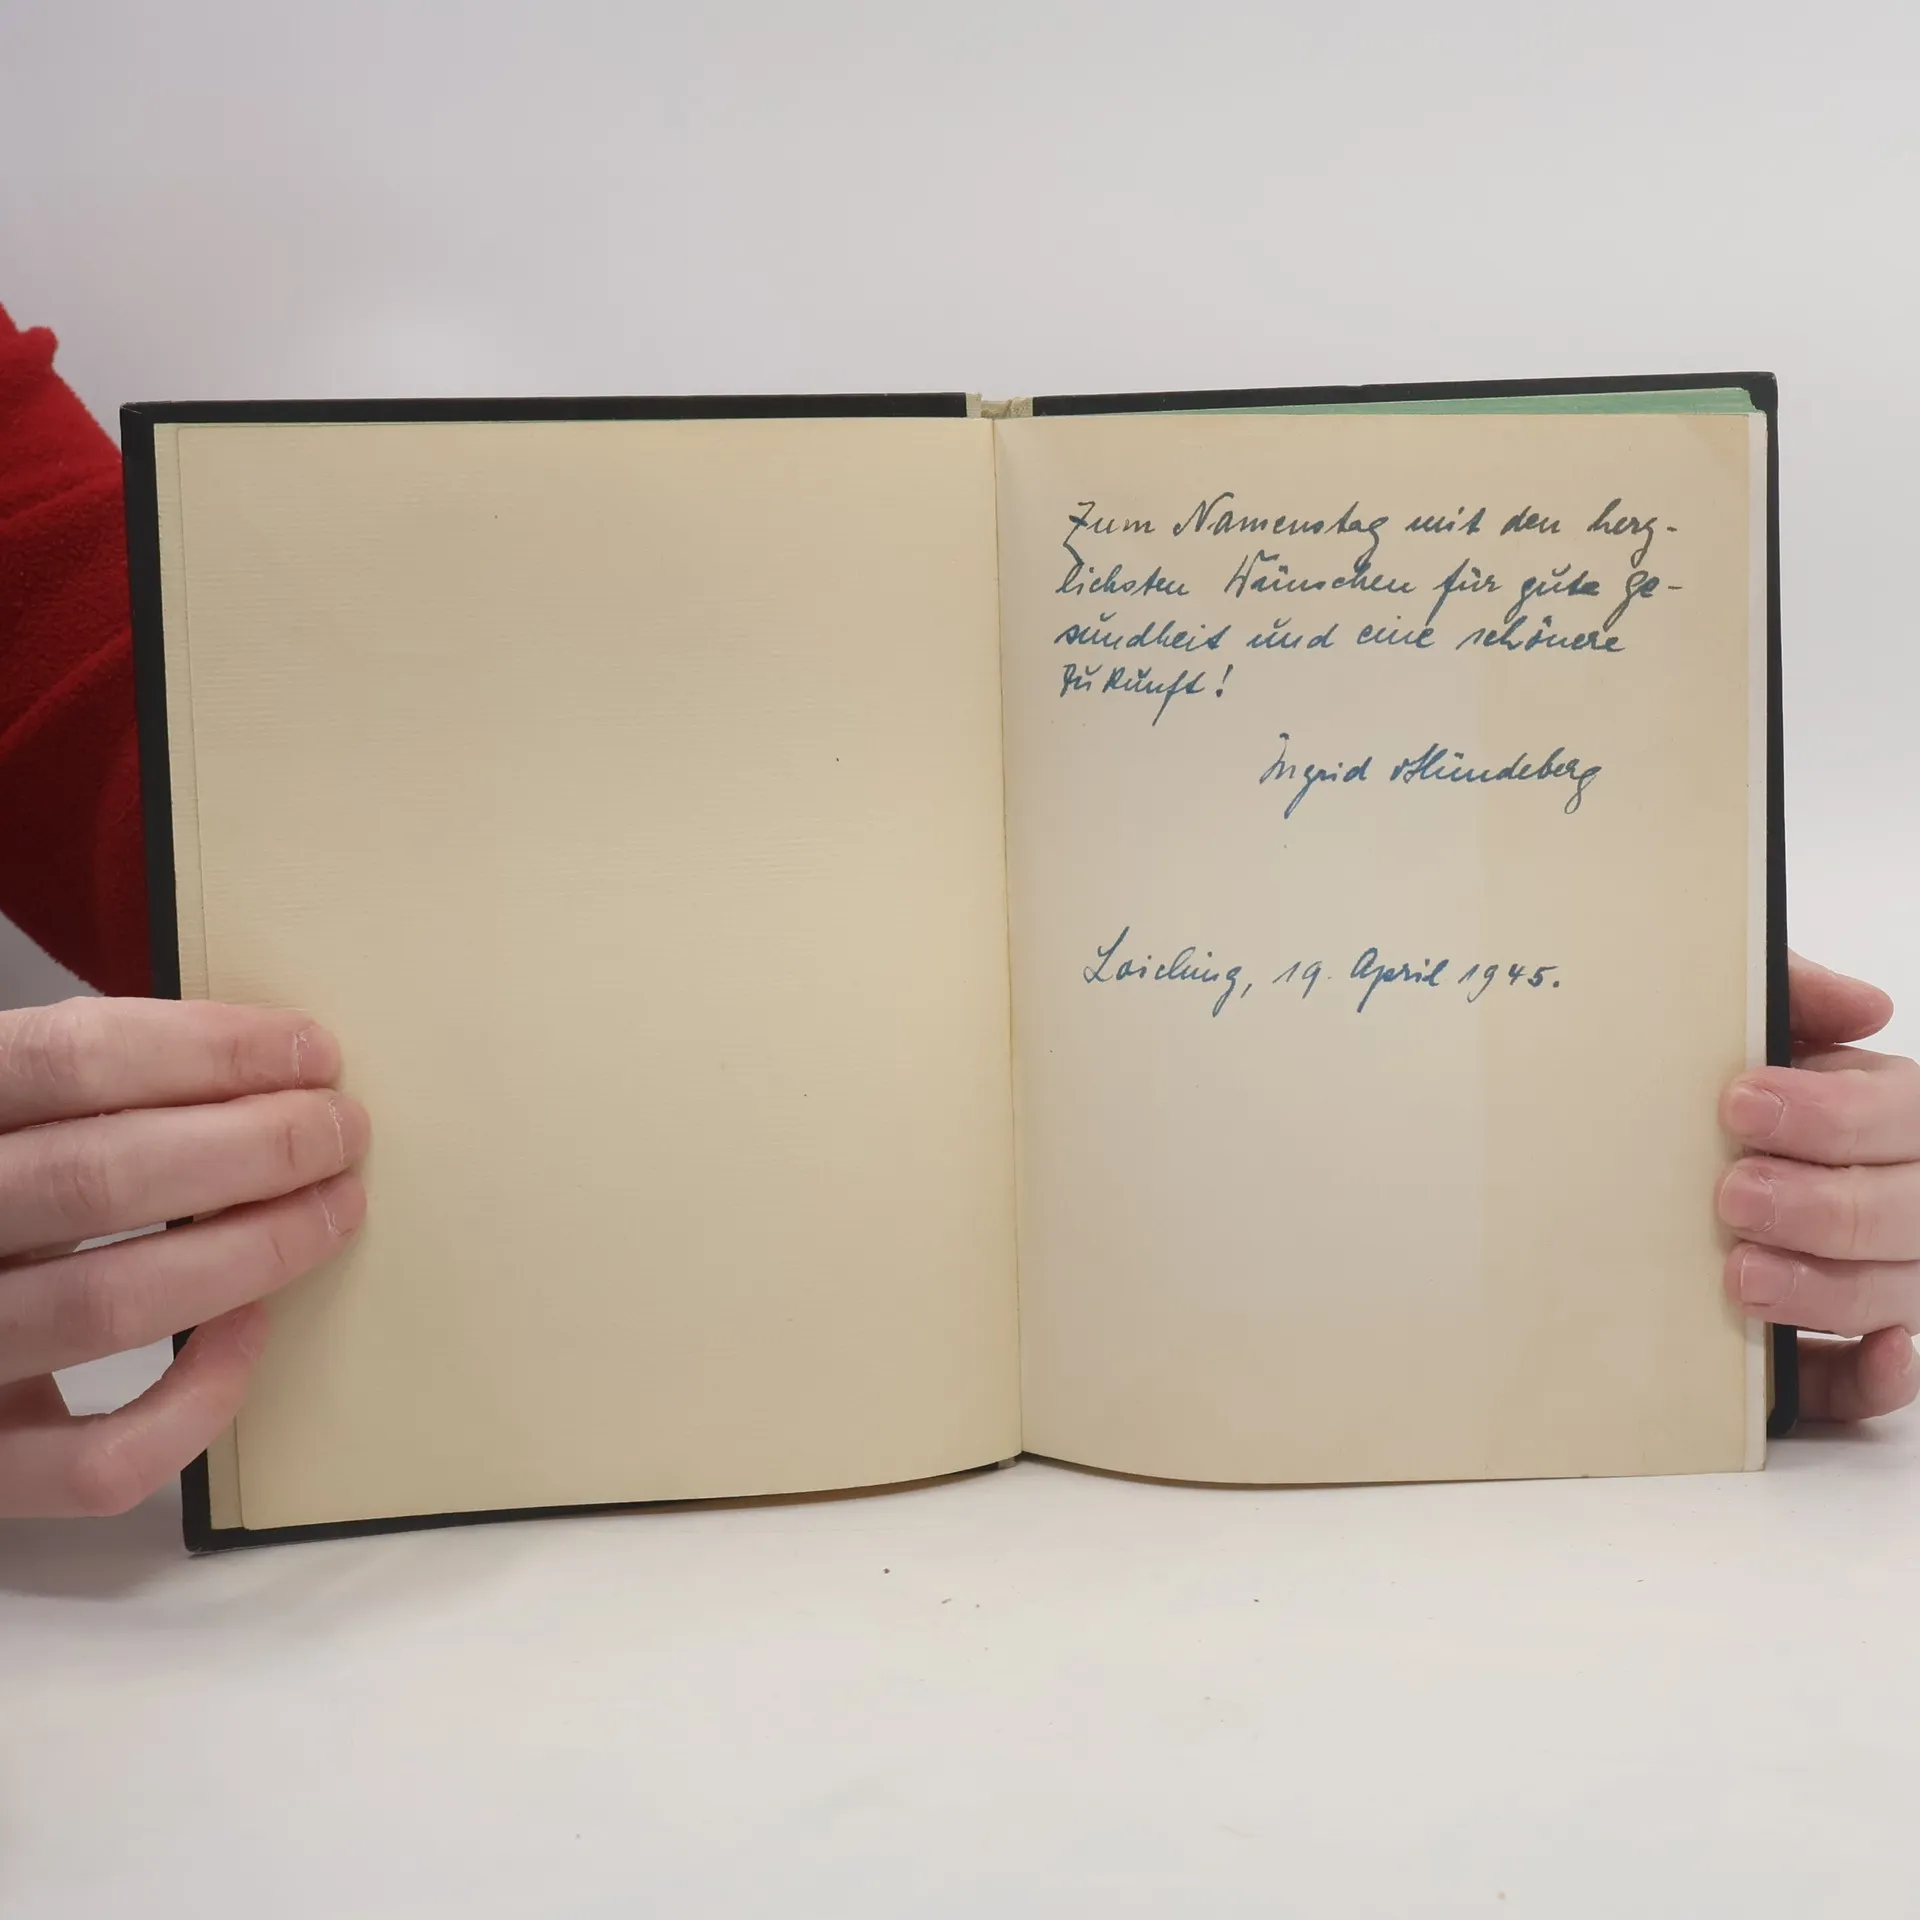 Zum Namenstag mit den herz-
lichsten Wünschen für gute Ge-
sundheit und eine schönere
Zukunft!
Ingrid
Loiching, 19. April 1945.